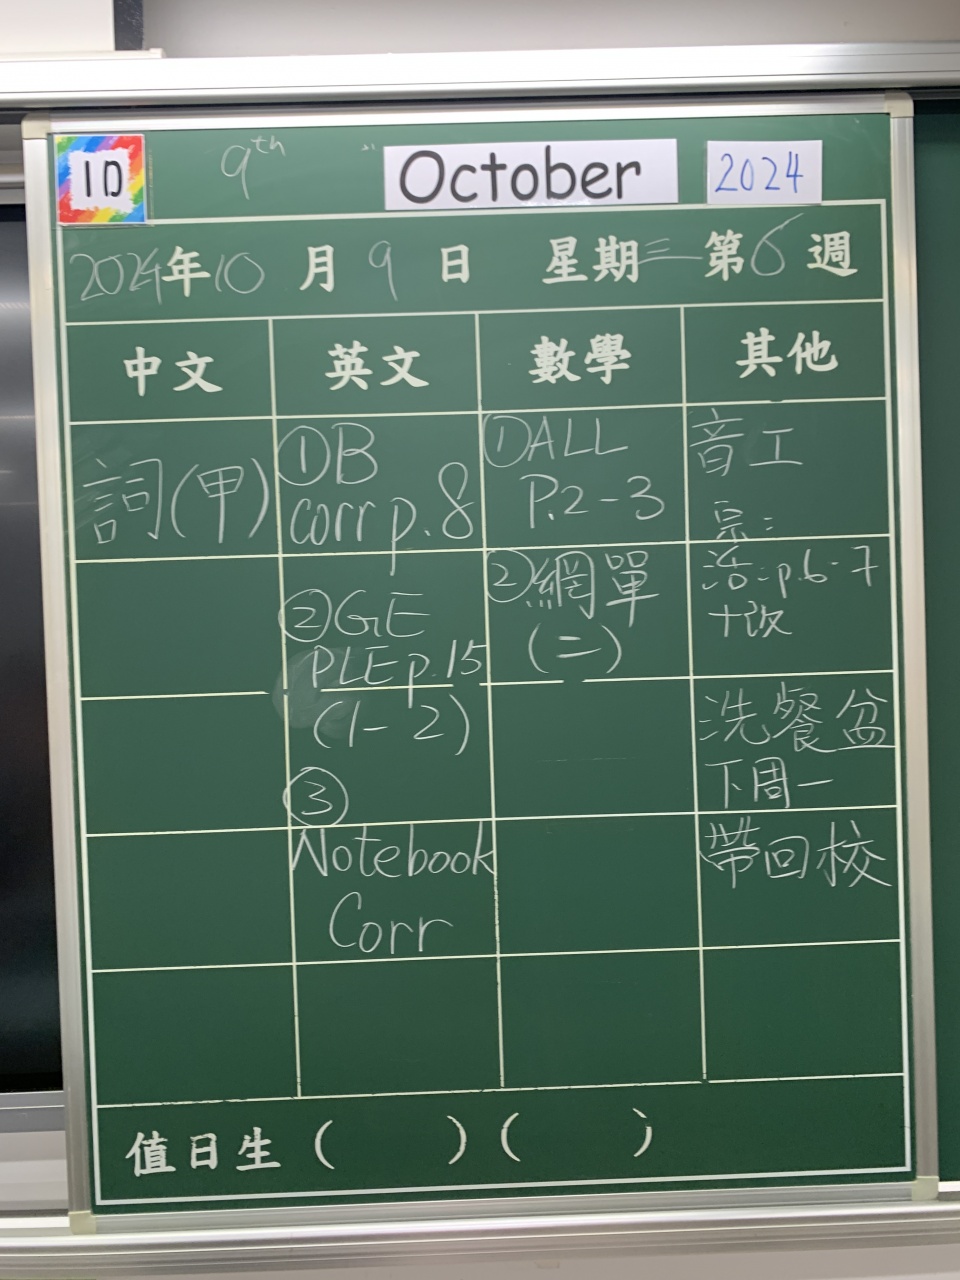 10 9th October 2024
2024年10月9日 星期三 第6週
中文 英文 數學 其他
詞(甲)
①B
corr p.8
②GE
PLE p.15
(1-2)
③
Notebook
Corr
①ALL
P.2-3
②網單
(二)
音工
宗:
活:p.6-7
+改
洗餐盆
下周一
帶回校
值日生 ( ) ( )